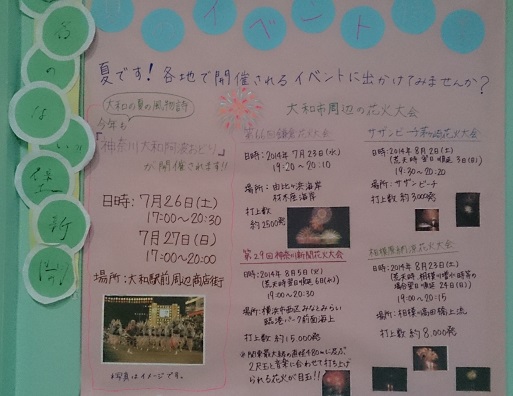 イベント
夏です！各地で開催されるイベントに出かけてみませんか？
大和の夏の風物詩
今年も
「神奈川大和阿波おどり」
が開催されます!!
日時：7月26日(土)
17:00～20:30
7月27日(日)
17:00～20:00
場所：大和駅前周辺商店街
※写真はイメージです。
大和市周辺の花火大会
鎌倉花火大会
日時：2014年7月23日(水)
19:20～20:10
場所：由比ヶ浜海岸
材木座海岸
打上数
約2500発
第29回神奈川新聞花火大会
日時：2014年8月5日(火)
(荒天時翌日順延6日(水))
19:00～20:30
場所：横浜市西区みなとみらい
臨港パーク前面海上
打上数
約15,000発
※関東最大級の直径480mに及ぶ
2尺玉と音楽に合わせて打ち上げ
られる花火が目玉!!
サザンビーチ茅ヶ崎花火大会
日時：2014年8月2日(土)
(荒天時翌日順延3日(日))
19:30～20:20
場所：サザンビーチ
打上数
約3000発
相模原納涼花火大会
日時：2014年8月23日(土)
(荒天時、相模川増水時等の
場合翌日順延24日(日))
19:00～20:15
場所：相模川高田橋上流
打上数
約8,000発